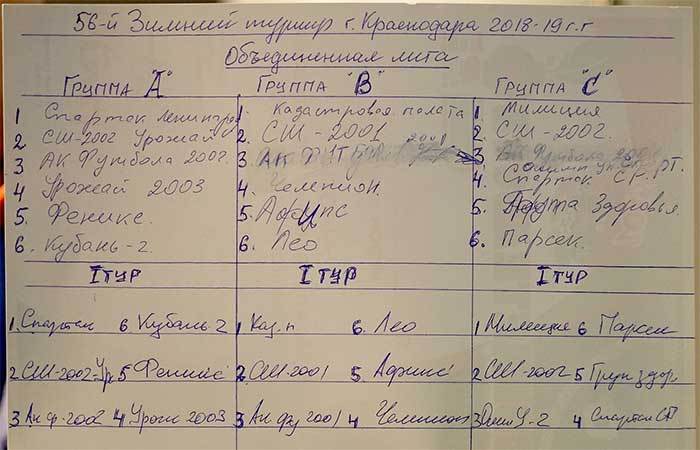 56-й Зимний турнир г. Краснодара 2018-19 г.г
Объединенная лига
Группа "А"
1 Спартак Ленингра
2 СШ-2002 Урожай
3 Ак Футбола 2002.
4 Урожай 2003
5. Феникс.
6. Кубань-2.
Группа "В"
1. Кадастровая палата
2. СШ-2001
3 Ак Футбол 2001
4. Чемпион.
5. Афипс
6. Лео
Группа "С"
1. Милиция
2. СШ-2002.
3
4. Спартак СК. РТ.
5. Здоровья.
6. Парсек.
I тур
1. Спартак 6. Кубань-2
2 СШ-2002-Ур 5 Феникс
3 Ак ф-2002 4 Урож 2003
I тур
1 Каз.п 6. Лео
2. СШ-2001 5. Афипс
3. Ак фу 2001 4 Чемпион
I тур
1. Милиция 6 Парсек
2 СШ-2002 5 Груп здор
3 4 Спартак СК